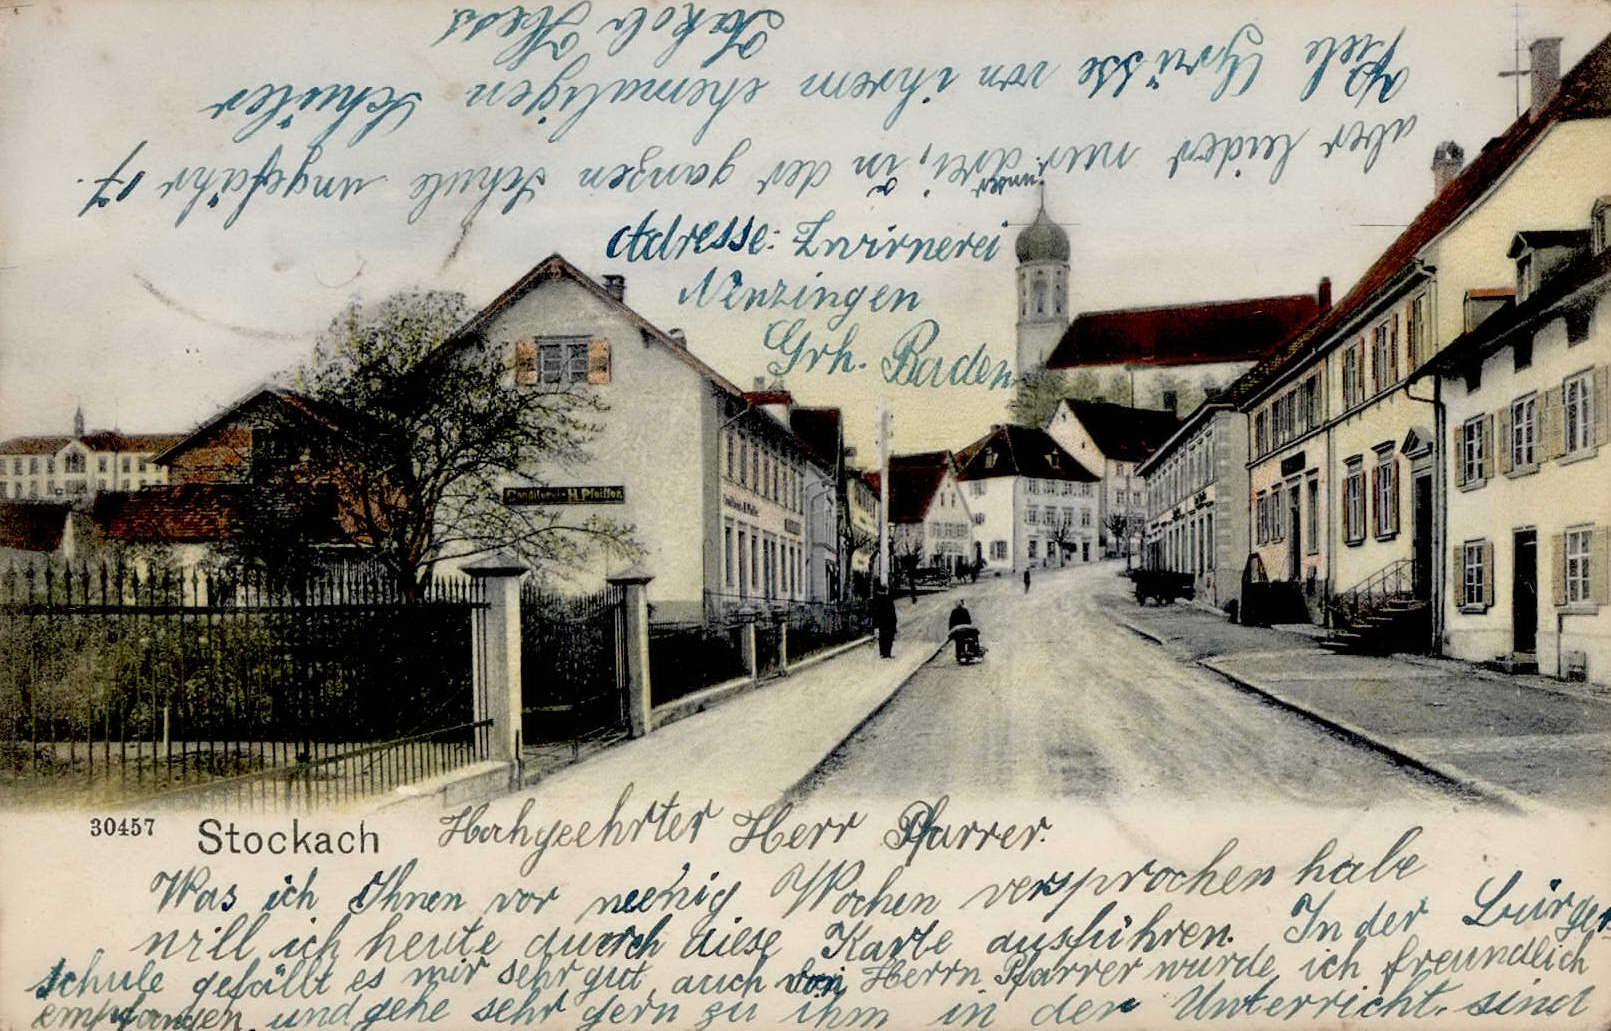 30457
Stockach
Conditorei H. Pfeiffer.
Hochgeehrter Herr Pfarrer.
Was ich Ihnen vor wenig Wochen versprochen habe
will ich heute durch diese Karte ausführen. In der Bürger-
schule gefällt es mir sehr gut, auch von Herrn Pfarrer wurde ich freundlich
empfangen, und gehe sehr gern zu ihm in den Unterricht. sind
aber leider nur drei, in der ganzen Schule ungefähr 17.
Viele Grüsse von ihrem ehemaligen Schüler
Jakob Hess
Adresse: Zwirnerei
Nenzingen
Grh. Baden